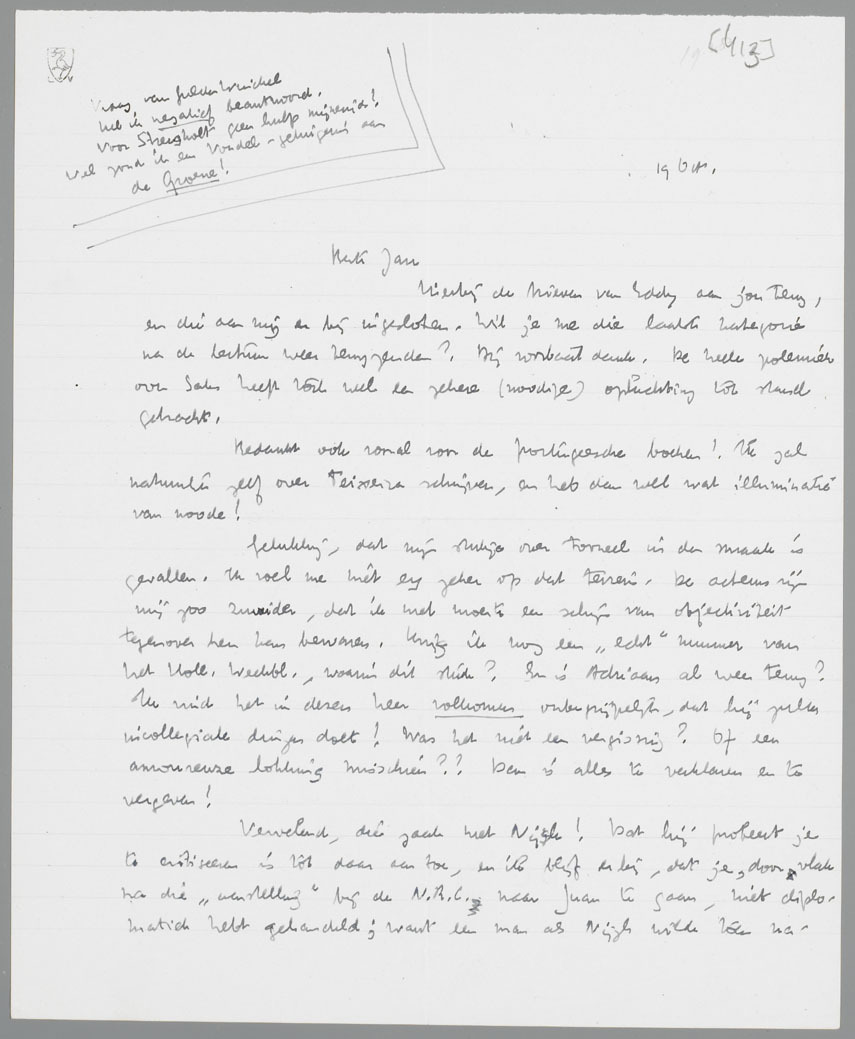 [413]
Vraag van Gulden Winckel
heb ik negatief beantwoord.
Voor Strengholt geen hulp mijnerzijds!
Wel zond ik een Vondel-getuigenis aan
de Groene!
19 Oct.
Beste Jan
Hierbij de brieven van Eddy aan jou terug,
en die aan mij er bij ingesloten. Wil je me die laatste kategorie
na de lectuur weer terugzenden? Bij voorbaat dank. De heele polemiek
over Saks heeft toch wel een zekere (noodige) opluchting tot stand
gebracht.
Bedankt ook vooral voor de Portugeesche boeken! Ik zal
natuurlijk zelf over Teixeira schrijven, en heb dan wel wat illuminatie
van noode!
Gelukkig, dat mijn stukje over tooneel in den smaak is
gevallen. Ik voel me niet erg zeker op dat terrein. De acteurs zijn
mij zoo zuwider, dat ik met moeite een schijn van objectiviteit
tegenover hen kan bewaren. Krijg ik nog een „echt" nummer van
het Holl. Weekbl., waarin dit stuk? En is Adriaan al weer terug?
Ik vind het in dezen heer volkomen onbegrijpelijk, dat hij zulke
oncollegiale dingen doet! Was het niet een vergissing? Of een
amoureuze lokking misschien?? Dan is alles te verklaren en te
vergeven!
Vervelend, die zaak met Nijgh! Dat hij probeert je
te critiseeren is tot daar aan toe, en ik blijf erbij, dat je, door vlak
na die „aanstelling" bij de N.R.C. naar Juan te gaan, niet diplo-
matiek hebt gehandeld; want een man als Nijgh wilde toen na-